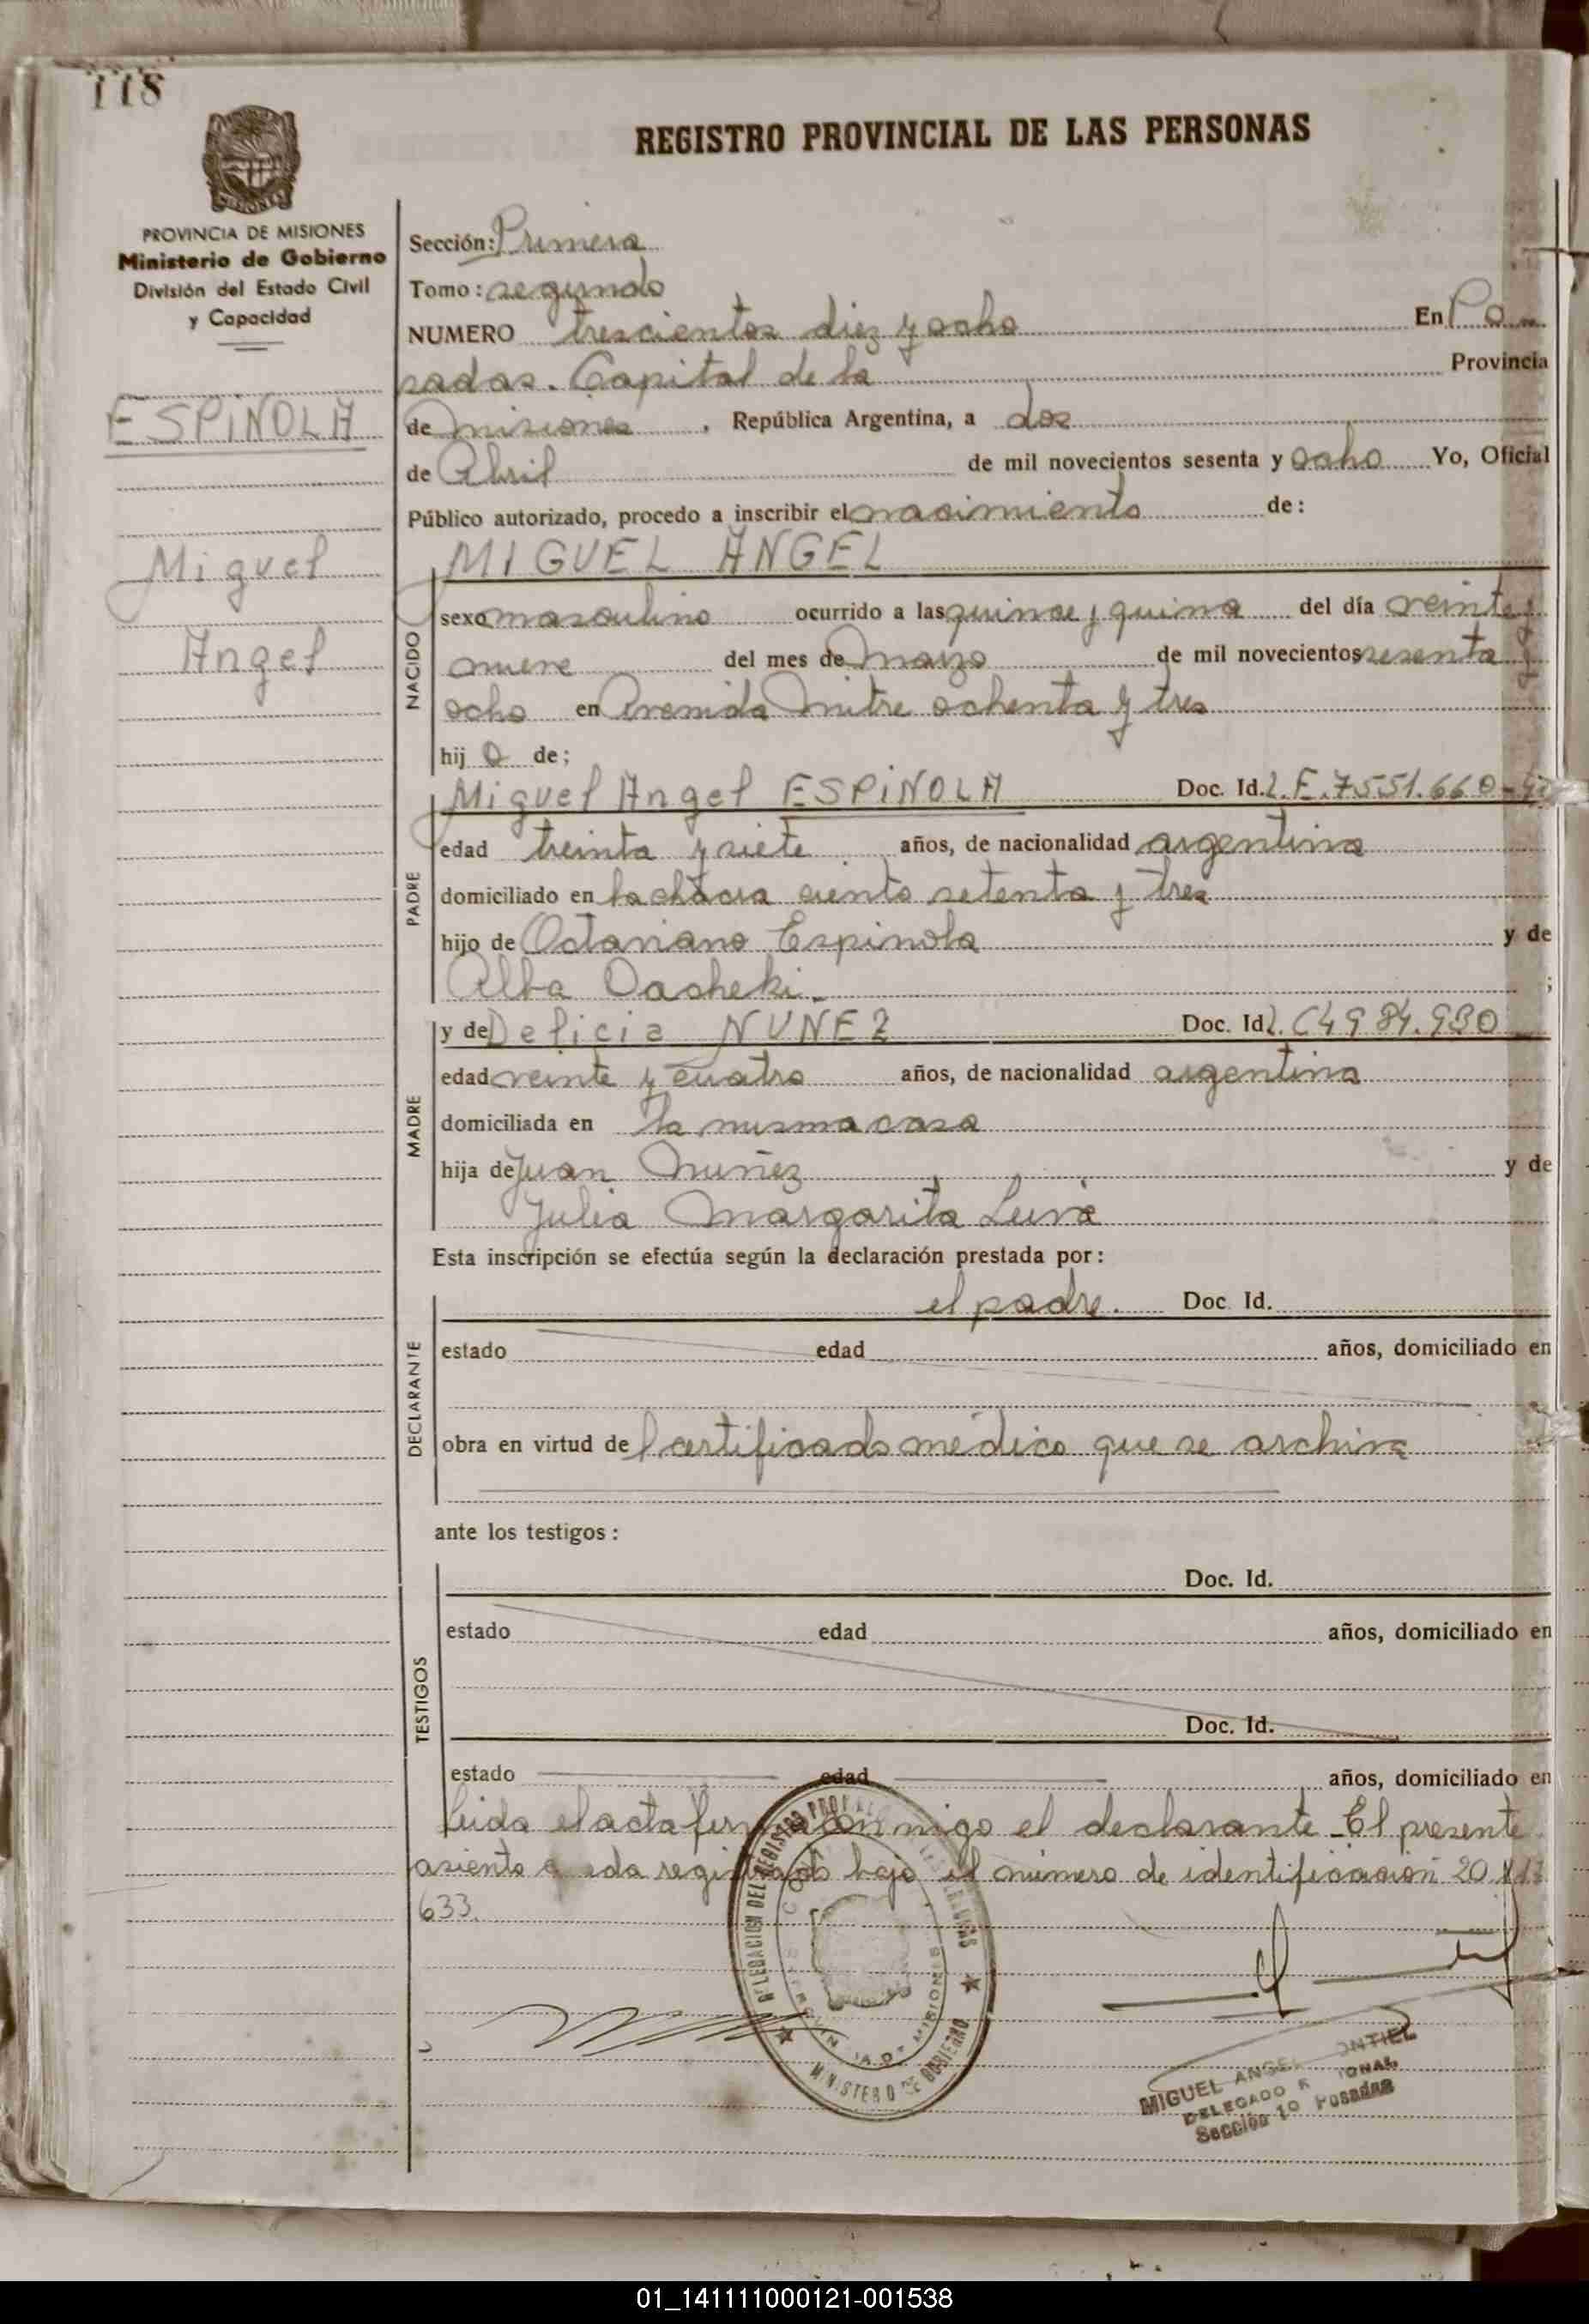 118
REGISTRO PROVINCIAL DE LAS PERSONAS
PROVINCIA DE MISIONES
Ministerio de Gobierno
División del Estado Civil
y Capacidad
ESPINOLA
Miguel
Angel
Sección: Primera
Tomo: segundo
NUMERO trescientos diez y ocho En Po-
sadas. Capital de la Provincia
de Misiones, República Argentina, a dos
de Abril de mil novecientos sesenta y ocho Yo, Oficial
Público autorizado, procedo a inscribir el nacimiento de:
MIGUEL ANGEL
NACIDO
sexo masculino ocurrido a las quince y quince del día veinte y
nueve del mes de Marzo de mil novecientos sesenta y
ocho en Avenida Mitre ochenta y tres
hijo de;
PADRE
Miguel Angel ESPINOLA Doc. Id. L.E. 7.551.660
edad treinta y siete años, de nacionalidad argentina
domiciliado en la chacra ciento setenta y tres
hijo de Octaviano Espinola y de
Alba ;
MADRE
y de Delicia NUÑEZ Doc. Id L.C 4984.930
edad veinte y cuatro años, de nacionalidad argentina
domiciliada en la misma casa
hija de Juan Nuñez y de
Julia Margarita Leiva
Esta inscripción se efectúa según la declaración prestada por:
DECLARANTE
el padre. Doc. Id.
estado edad años, domiciliado en
obra en virtud del certificado médico que se archiva
ante los testigos:
TESTIGOS
Doc. Id.
estado edad años, domiciliado en
Doc. Id.
estado edad años, domiciliado en
Leida el acta conmigo el declarante. El presente
asiento queda registrado bajo el número de identificación 20
633.
DELEGACION DEL REGISTRO
MISIONES
MINISTERIO DE GOBIERNO
MIGUEL ANGEL
DELEGADO
Sección 1º Posadas
01_141111000121-001538